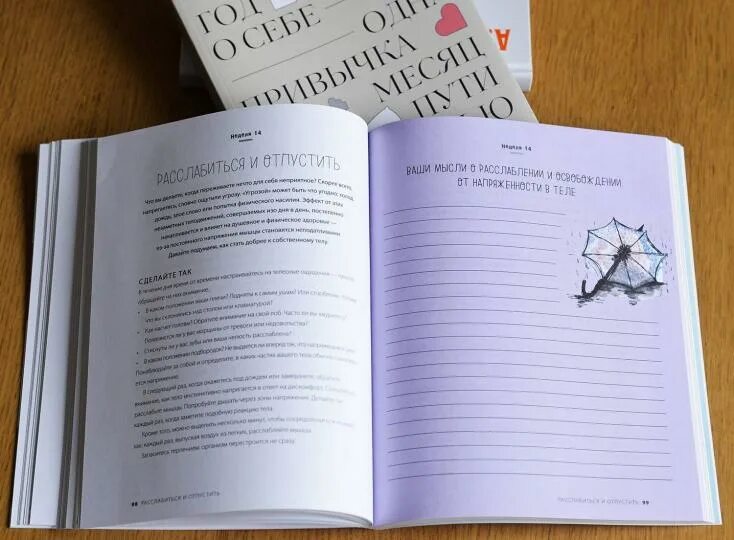 ГОД
О СЕБЕ — ОДНА
ПРИВЫЧКА
МЕСЯЦ
ПУТИ
Ю
А.
Неделя 14
РАССЛАБИТЬСЯ И ОТПУСТИТЬ
Что вы делаете, когда переживаете нечто для себя неприятное? Скорее всего,
напрягаетесь, словно ощутили угрозу. «Угрозой» может быть что угодно: холод,
дождь, злое слово или попытка физического насилия. Эффект от этих
незаметных телодвижений, совершаемых изо дня в день, постепенно
накапливается и влияет на душевное и физическое здоровье —
из-за постоянного напряжения мышцы становятся неподатливыми
Давайте подумаем, как стать добрее к собственному телу.
СДЕЛАЙТЕ ТАК
В течение дня время от времени настраивайтесь на телесные ощущения —
обращайте на них внимание.
• В каком положении ваши плечи? Подняты к самым ушам? Или
что вы склонились над столом или клавиатурой?
• Как насчет головы? Обратите внимание на свой лоб. Часто ли вы
Появляются ли у вас морщины от тревоги или недовольства?
• Стиснуты ли у вас зубы или ваша челюсть расслаблена?
• В каком положении подбородок? Не выдается ли вперед так, что
Понаблюдайте за собой и определите, в каких частях вашего тела обычно
ется напряжение.
В следующий раз, когда окажетесь под дождем или замерзнете, обратите
внимание, как тело инстинктивно напрягается в ответ на дискомфорт.
расслабьте мышцы. Попробуйте дышать через зоны напряжения.
каждый раз, когда заметите подобную реакцию тела.
Кроме того, можно выделить несколько минут, чтобы
каждый раз, выпуская воздух из легких, расслабляйте мышцы.
Запаситесь терпением: организм перестроится не сразу.
98 РАССЛАБИТЬСЯ И ОТПУСТИТЬ
Неделя 14
ВАШИ МЫСЛИ О РАССЛАБЛЕНИИ И ОСВОБОЖДЕНИИ
ОТ НАПРЯЖЕННОСТИ В ТЕЛЕ
РАССЛАБИТЬСЯ И ОТПУСТИТЬ 99